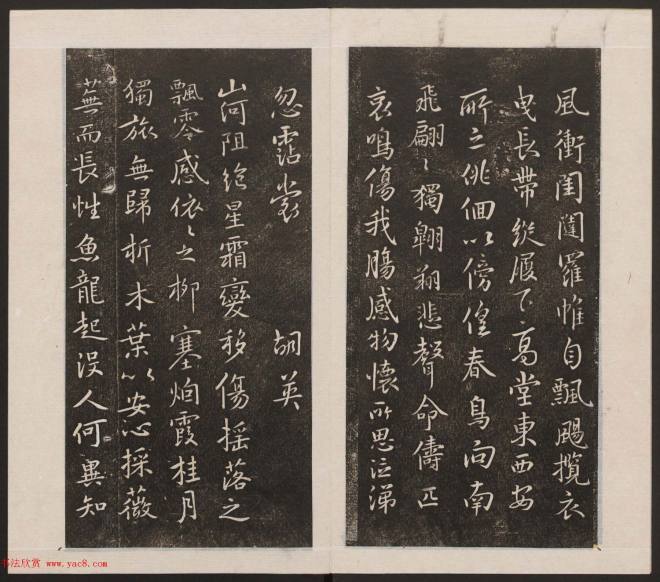 風衝閨闥羅帷自飄颺攬衣
曳長帶縱履下高堂東西安
所之俳佪以傍偟春鳥向南
飛翩〻獨翱翔悲聲命儔匹
哀鳴傷我腸感物懷所思泣涕
忽霑裳 胡英
山河阻絶星霜變移傷摇落之
飄零感依〻之柳塞烱霞桂月
獨旅無歸折木葉以安心採薇
蕪而長性魚龍起没人何異知
书法欣赏 www.yac8.com